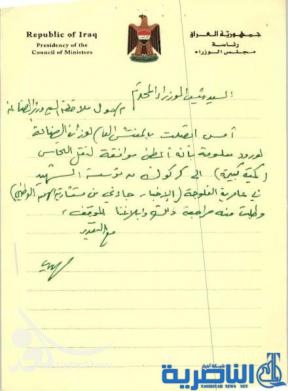 Republic of Iraq
Presidency of the
Council of Ministers
جمهورية العراق
رئاسة
مجلس الوزراء
السيد رئيس الوزراء المحترم
أمس اتصلت بالمفتش العام لوزارة الصناعة
لورود معلومة بأنه أعطى موافقة لنقل النحاس
(كمية كبيرة) الى كركوك من مؤسسة الشهيد
في عامرية الفلوجة (الإخبار جاءني من مستشارية الأمن الوطني)
وطلبت منه مراجعة ذلك وإبلاغنا الموقف،
مع التقدير
شبكة أخبار
الناصرية